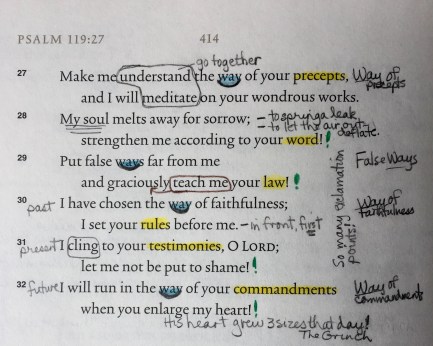 PSALM 119:27 414
go together
27 Make me understand the way of your precepts, Way of Precepts
and I will meditate on your wondrous works.
28 My soul melts away for sorrow; - to spring a leak,
- to let the air out, deflate.
strengthen me according to your word!
29 Put false ways far from me False Ways
and graciously teach me your law!
So many exclamation points!
past 30 I have chosen the way of faithfulness; Way of faithfulness
I set your rules before me. - in front, first
present 31 I cling to your testimonies, O LORD;
let me not be put to shame!
future 32 I will run in the way of your commandments Way of commandments
when you enlarge my heart!
His heart grew 3 sizes that day!
The Grinch